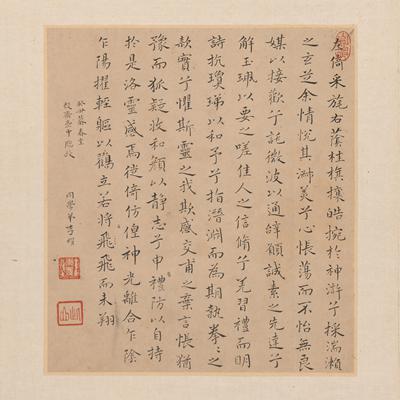 左倚采旄右蔭桂旗攘皓捥於神滸兮採湍瀨
之玄芝余情悅其淑美兮心悵蕩而不怡無良
媒以接歡兮託微波以通辭願誠素之先達兮
解玉珮以要之嗟佳人之信脩兮羌習禮而明
詩抗瓊珶以和予兮指潛淵而為期執拳拳之
款實兮懼斯靈之我欺感交甫之棄言悵猶
豫而狐疑收和顏以靜志兮申禮防以自持
於是洛靈感焉徙倚彷徨神光離合乍陰
乍陽擢輕軀以鶴立若將飛飛而未翔
同學弟